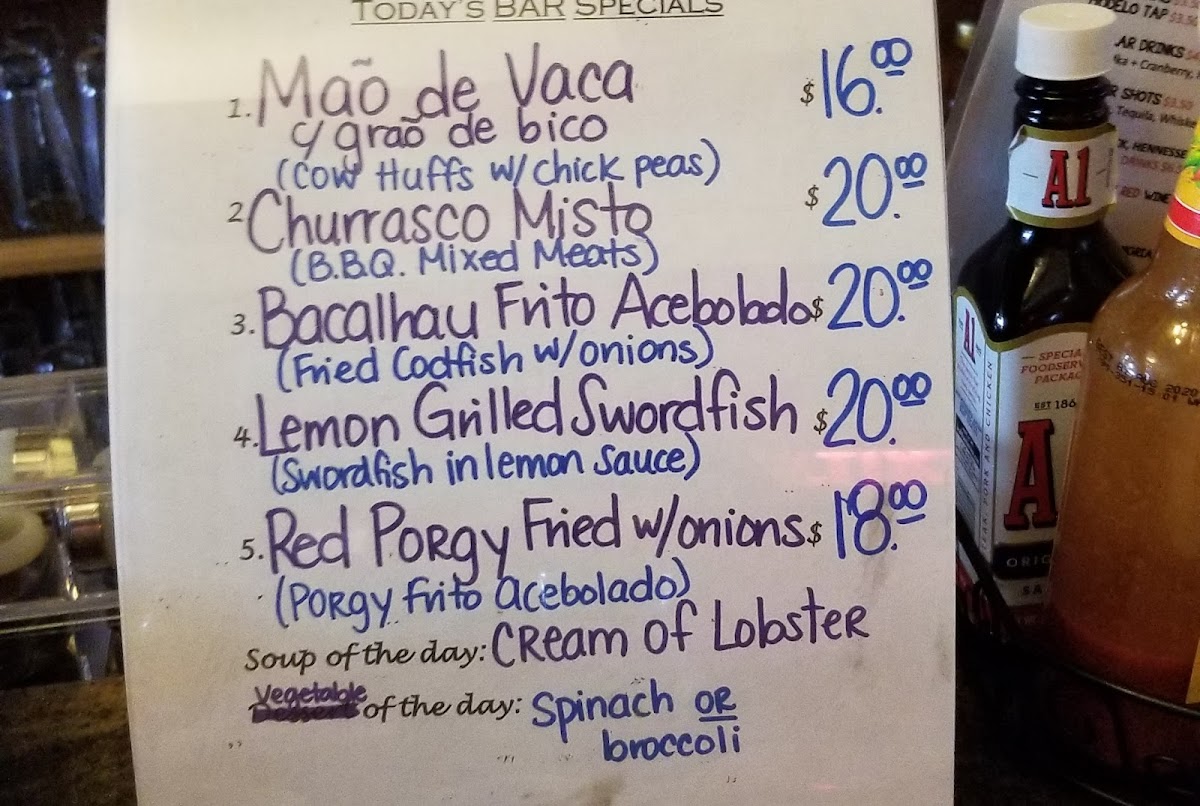 TODAY'S BAR SPECIALS
1. Mão de Vaca $16.00
c/grão de bico
(Cow Huffs w/ chick peas)
2 Churrasco Misto $20.00
(B.B.Q. Mixed Meats)
3. Bacalhau Frito Acebolado $20.00
(Fried Codfish w/onions)
4. Lemon Grilled Swordfish $20.00
(Swordfish in lemon Sauce)
5. Red Porgy Fried w/onions $18.00
(Porgy Frito Acebolado)
Soup of the day: Cream Of Lobster
Vegetable of the day: Spinach OR
broccoli
MODELO TAP $3.50
DRINKS
Cranberry,
SHOTS $3.50
Tequila,
HENNESSE
DRINKS
RED WINE
A1
A1
SPECIA
FOODSERV
PACKAG
EST 186
A
ORIG
SA
PORK AND CHICKEN
2020